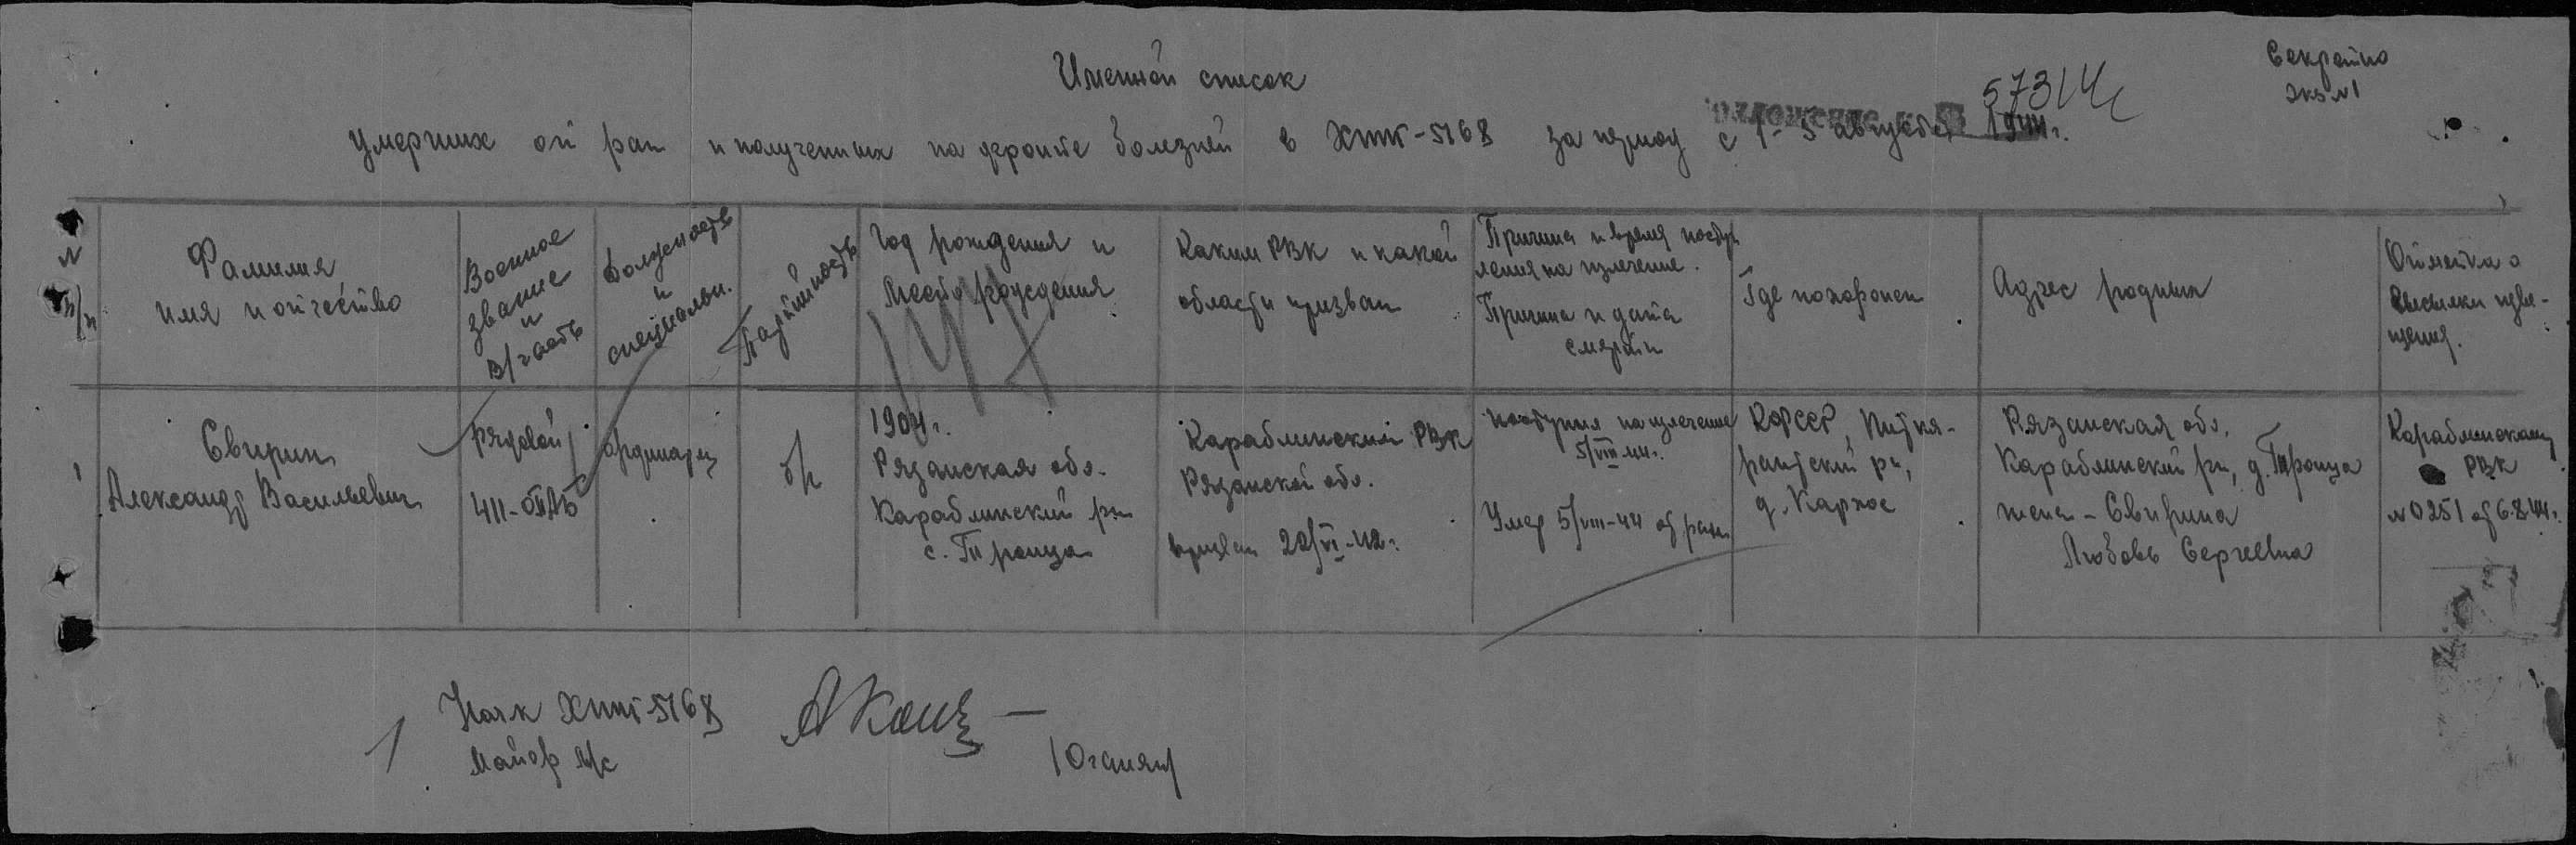 Секретно
экз №1
57314с
Именной список
умерших от ран и полученных на фронте болезней в ХППГ-5168 за период с 1-5 августа 1944г.
№ п/п
Фамилия
имя и отчество
Военное
звание
и
в/часть
Должность
и
специальн.
Партийность
Год рождения и
место рождения
Каким РВК и какой
области призван
Причина и время поступ
ления на излечение.
Причина и дата
смерти
Где похоронен
Адрес родных
Отметка о
высылки изве-
щения.
1
Свирин
Александр Васильевич
рядовой
411-ОПАБ
ординарец
б/п
1904г.
Рязанская обл.
Кораблинский рн
с. Троица
Кораблинский РВК
Рязанской обл.
призван 20/VI-42г.
поступил на излечение
5/VIII 44г.
Умер 5/VIII-44 от ран
КФССР, Питкя-
рантский рн,
д. Каркое
Рязанская обл.
Кораблинский рн, д. Троица
жена - Свирина
Любовь Сергеевна
Кораблинскому
РВК
№0251 от 6.8.44г.
Нач-к ХППГ 5168
Майор м/с
/Оганян/